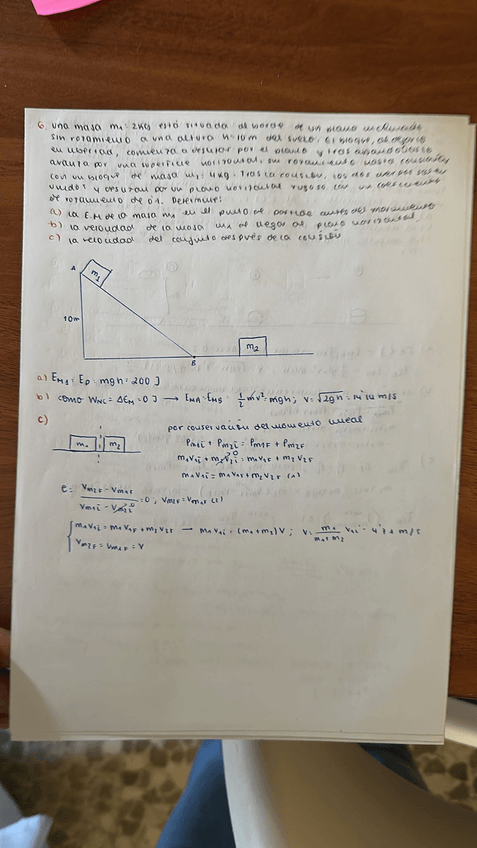 6. una masa m₁ = 2Kg está situada al borde de un plano inclinado
sin rozamiento a una altura h=10m del suelo. El bloque, al dejarse
en libertad, comienza a deslizar por el plano y tras abandonarlo
avanza por una superficie horizontal, sin rozamiento hasta
con un bloque de masa m₂ = 4Kg. Tras la colisión, los dos
unidos y deslizan por un plano horizontal rugoso con un coeficiente
de rozamiento de 0'1. Determine:
a) La E.M de la masa m₁ en el punto de partida antes del movimiento
b) la velocidad de la masa m₁ al llegar al plano horizontal
c) la velocidad del conjunto después de la colisión
A
m₁
10m
B
m₂
a) EM₁ = Ep = mgh = 200 J
b) como WNC = ΔEM = 0 J → EMA = EMB = ½mv² = mgh; v = √2gh = 14'14 m/s
c)
por conservación del momento lineal
m₁ m₂
Pm1i + Pm2i = Pm1F + Pm2F
m₁v₁i + m₂v₂i⁰ = m₁v₁F + m₂v₂F
m₁v₁i = m₁v₁F + m₂v₂F (1)
e = (Vm2F - Vm1F)/(Vm1i - Vm2i⁰) = 0; Vm2F = Vm1F (2)
{ m₁v₁i = m₁v₁F + m₂v₂F → m₁v₁i = (m₁+m₂)V; V = m₁/(m₁+m₂) V₁i = 4'7 m/s
Vm2F = Vm1F = V